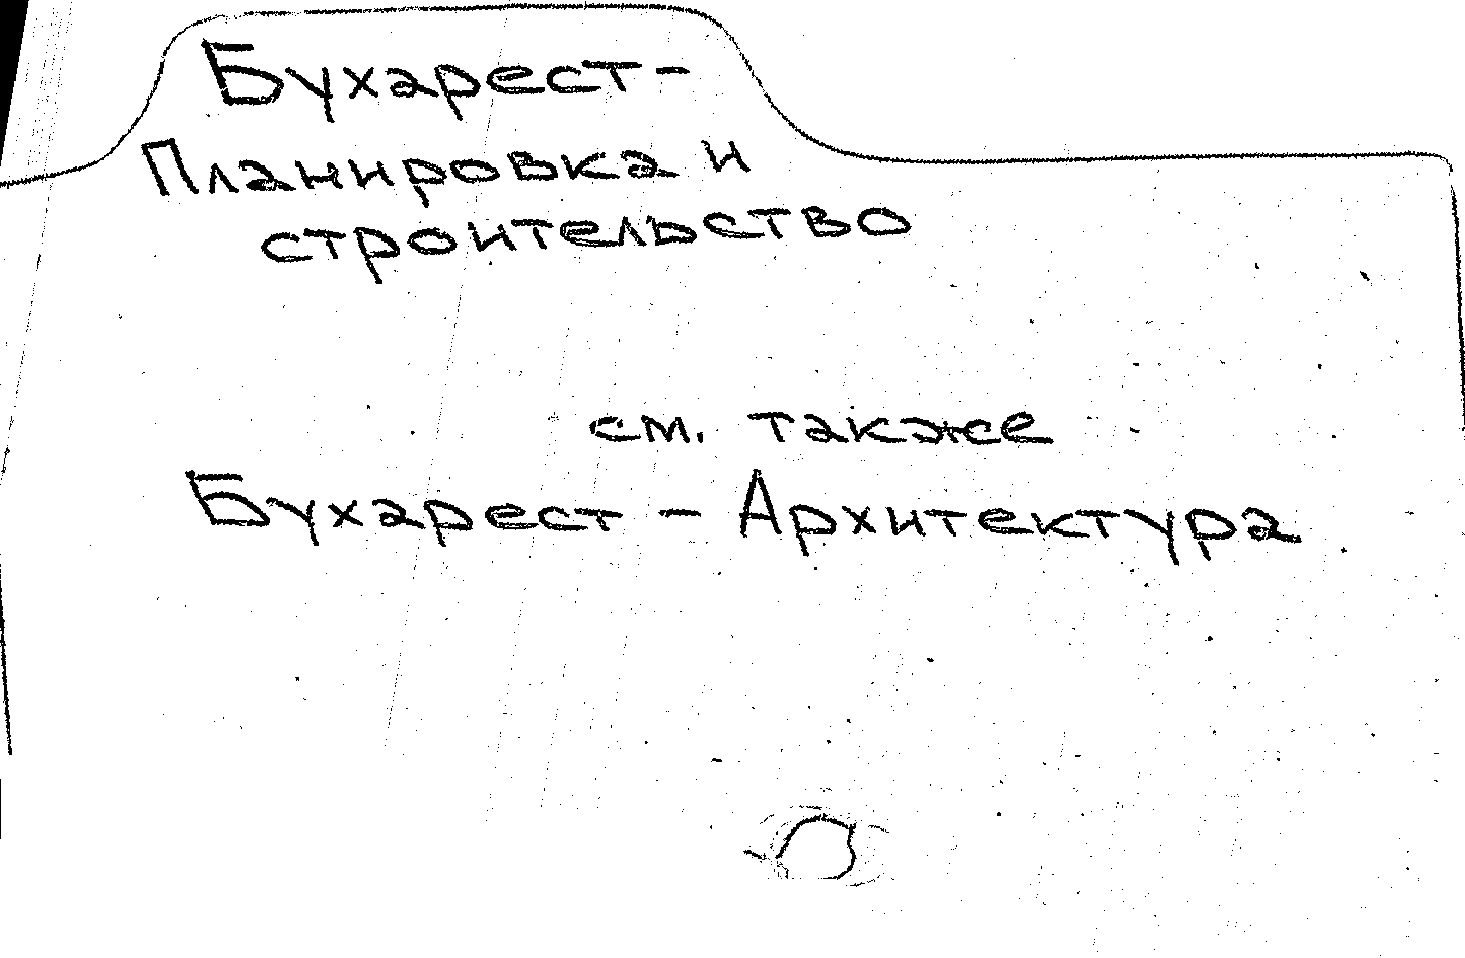 Бухарест-
Планировка и
строительство
см. также
Бухарест - Архитектура